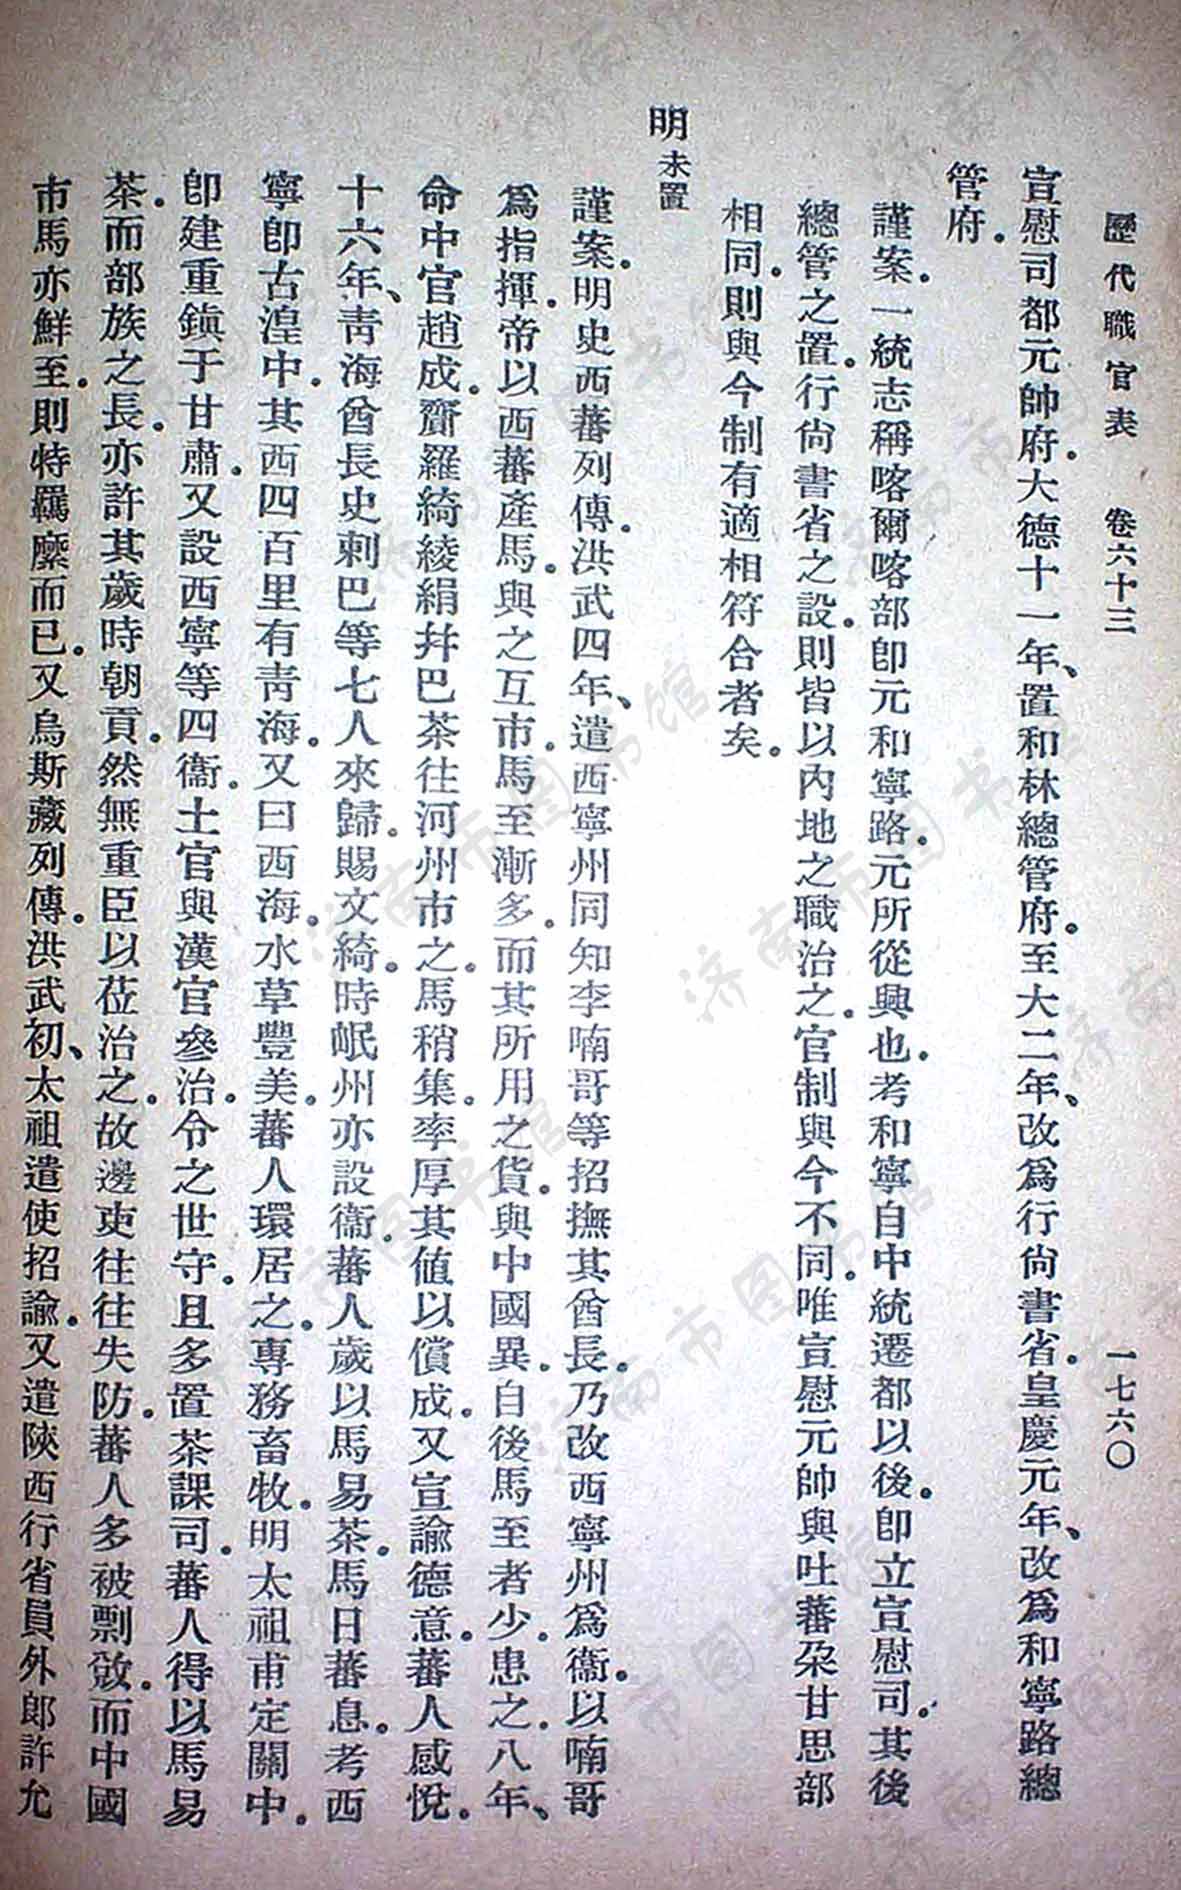 歷代職官表　卷六十三　一七六〇
宣慰司都元帥府。大德十一年、置和林總管府。至大二年、改爲行尙書省。皇慶元年、改爲和寧路總
管府。
謹案。一統志稱喀爾喀部卽元和寧路。元所從興也。考和寧自中統遷都以後。卽立宣慰司。其後
總管之置。行尙書省之設。則皆以內地之職治之。官制與今不同。唯宣慰元帥與吐蕃朶甘思部
相同。則與今制有適相符合者矣。
明未置
謹案。明史西蕃列傳。洪武四年、遣西寧州同知李喃哥等招撫其酋長。乃改西寧州爲衞。以喃哥
爲指揮。帝以西蕃產馬。與之互市。馬至漸多。而其所用之貨。與中國異。自後馬至者少。患之。八年、
命中官趙成。齎羅綺綾絹幷巴茶往河州市之。馬稍集。率厚其値以償。成又宣諭德意。蕃人感悅。
十六年、靑海酋長史剌巴等七人來歸。賜文綺。時岷州亦設衞。蕃人歲以馬易茶。馬日蕃息。考西
寧卽古湟中。其西四百里有靑海。又曰西海。水草豐美。蕃人環居之。專務畜牧。明太祖甫定關中。
卽建重鎭于甘肅。又設西寧等四衞。土官與漢官參治。令之世守。且多置茶課司。蕃人得以馬易
茶。而部族之長。亦許其歲時朝貢。然無重臣以莅治之。故邊吏往往失防。蕃人多被剽敓。而中國
市馬亦鮮至。則特羈縻而已。又烏斯藏列傳。洪武初、太祖遣使招諭。又遣陝西行省員外郎許允
济南市图书馆
济南市图书馆
济南市图书馆
济南市图书馆